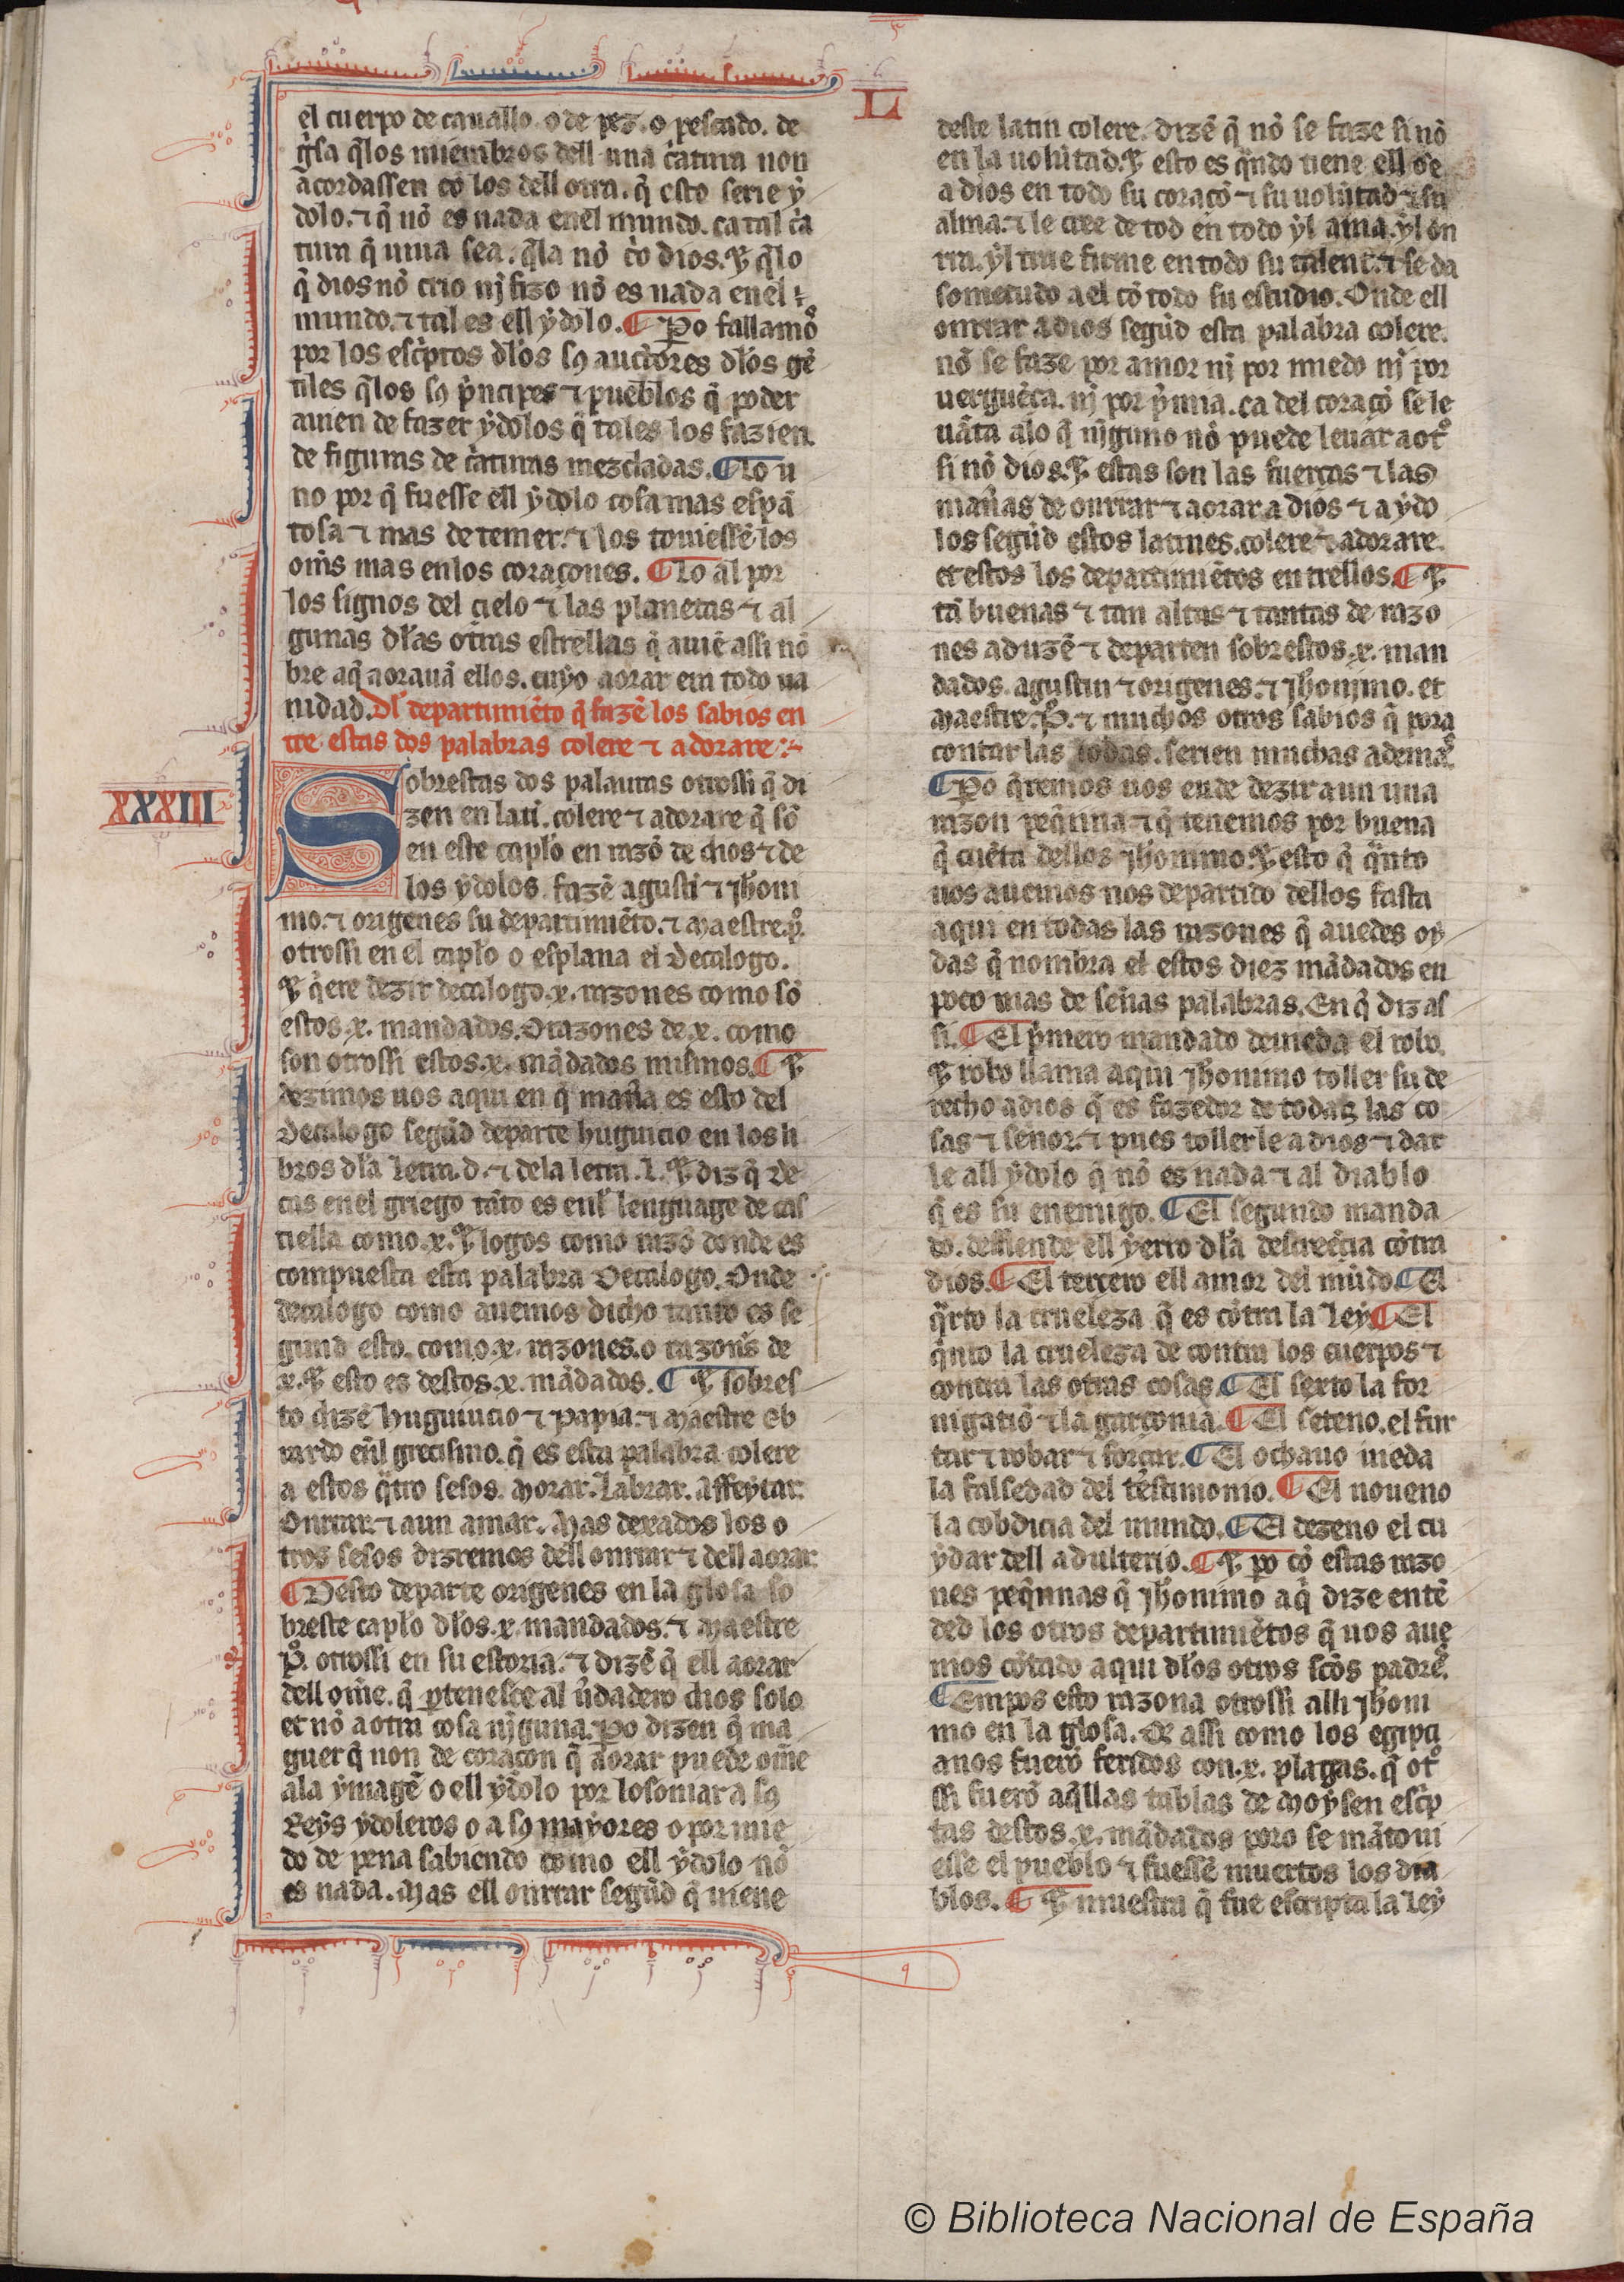 L
el cuerpo de cauallo. o de pez. o pescado. de
g̉sa q̃los miembros dell una c̉atura non
acordassen cõ los dell otra. q̃ esto serie ẏ
dolo. ⁊ q̃ nõ es nada enel mundo. ca tal c̉a
tura q̃ una sea. q̃la nõ c̉o dios. ⁊ q̃lo
q̃ dios nõ crio nj fizo nõ es nada enel
mundo. ⁊ tal es ell ẏdolo. ¶ P̲o fallamo᷒
por los esc̉ptos dl̃os sꝯ auctores dl̃os gẽ
tiles q̃los sꝯ p̉ncipes ⁊ pueblos q̃ poder
auien de fazer ẏdolos q̃ tales los fazien.
de figuras de c̉aturas mezcladas. ¶ lo u
no por q̃ fuesse ell ẏdolo cosa mas espã
tosa ⁊ mas de temer. ⁊ los touiessẽ los
om̃s mas enlos coraçones. ¶ lo al por
los signos del cielo ⁊ las planetas ⁊ al
gunas dl̃as otras estrellas q̃ auiẽ assi nõ
bre aq̃ aorauã ellos. cuyo aorar era todo ua
nidad. Dl̃ departimiẽto q̃ fazẽ los sabios en
tre estas dos palabras colere ⁊ adorare
XXXIII
Sobrestas dos palauras otrossi q̃ di
zen en lati. colere ⁊ adorare q̃ sõ
en este capl̃o en razõ de dios ⁊ de
los ẏdolos. fazẽ agusti ⁊ jh̃oni
mo. ⁊ origenes su departimiẽto. ⁊ maestre. p̊.
otrossi en el capl̃o o esplana el Decalogo.
⁊ q̉ere dezir decalogo .x. razones como sõ
estos .x. mandados. O razones de .x. como
son otrossi estos .x. mãdados mismos. ¶ ⁊
dezimos uos aqui en q̃ mañ̃a es esto del
Decalogo segũd departe huguicio en los li
bros dl̃a letra .d. ⁊ dela letra .l. ⁊ diz q̃ De
cas enel griego tãto es enl̃ lenguage de cas
tiella como .x. ⁊ logos como razõ donde es
compuesta esta palabra Decalogo. Onde
decalogo como auemos dicho tanto es se
gund esto. como .x. razones. o razon̉s de
.x. ⁊ esto es destos .x. mãdados. ¶ ⁊ sobres
to dizẽ huguiucio ⁊ papia. ⁊ maestre eb
rardo en̉l grecismo. q̃ es esta palabra colere
a estos q̃tro sesos. Morar. Labrar. Affeẏtar.
Onrrar. ⁊ aun amar. Mas dexados los o
tros sesos dizremos dell onrrar ⁊ dell aorar.
¶ Desto departe origenes en la glosa so
breste capl̃o dl̃os .x. mandados. ⁊ maestre
P̊. otrossi en su estoria. ⁊ dizẽ q̃ ell aorar
dell om̃e. q̃ p̲tenesce al ủdadero dios solo
et nõ a otra cosa nj̃guna. P̲o dizen q̃ ma
guer q̃ non de coraçon q̃ aorar puede om̃e
ala ẏmagẽ o ell ẏdolo por losoniar a sꝯ
Reẏs ẏdoleros o a sꝯ mayores o por mie
do de pena sabiendo como ell ẏdolo nõ
es nada. Mas ell onrrar segũd q̃ uiene
deste latin colere. dizẽ q̃ nõ se faze si nõ
en la uolũtad. ⁊ esto es q̃ndo tiene ell om̃e
a dios en todo su coraçõ ⁊ su uolũtad ⁊ su
alma. ⁊ le cree de tod en todo ẏl ama. ẏl on
rra. ẏl tiue firme en todo su talent. ⁊ se da
sometudo a el cõ todo su estudio. Onde ell
onrrar a dios segũd esta palabra colere.
nõ se faze por amor nj por miedo nj por
uerguẽça. nj por p̉mia. ca del coraçõ se le
uãta alo q̃ nj̃guno nõ puede leuar a ot᷒
si nõ dios. ⁊ estas son las fuerças ⁊ las
mañ̃as de onrrar ⁊ aorar a dios ⁊ a ẏdo
los segũd estos latines. colere ⁊ adorare.
et estos los departimiẽtos entrellos. ¶ ⁊
tã buenas ⁊ tan altas ⁊ tantas de razo
nes aduzẽ ⁊ departen sobrestos .x. man
dados. agustin ⁊ origenes. ⁊ jh̃onjmo. et
Maestre. P̊. ⁊ muchos otros sabios q̃ pora
contar las todas. serien muchas adema᷒.
¶ P̲o q̃remos uos ende dezir aun una
razon peq̃nna ⁊ q̃ tenemos por buena
q̃ cuẽta dellos jh̃onimo. ⁊ esto q̃ q̃nto
uos auemos nos departido dellos fasta
aqui en todas las razones q̃ auedes oẏ
das q̃ nombra el estos diez mãdados en
poco mas de señas palabras. En q̃ diz as
si. ¶ El p̉mero mandado deuieda el robo.
⁊ robo llama aqui jh̃onimo toller su de
recho a dios q̃ es fazedor de todas las co
sas ⁊ señor. ⁊ pues toller le a dios ⁊ dar
le all ẏdolo q̃ nõ es nada ⁊ al diablo
q̃ es su enemigo. ¶ El segundo manda
do. defiende ell ẏerro dl̃a descreẽcia cõtra
dios. ¶ El tercero ell amor del mũdo. ¶ El
q̃rto la crueleza q̃ es cõtra la ley. ¶ El
q̉nto la crueleza de contra los cuerpos ⁊
contra las otras cosas. ¶ El sexto la for
nigatiõ ⁊ la garçonia. ¶ El seteno. el fur
tar ⁊ robar ⁊ forçar. ¶ El ochauo uieda
la falsedad del testimonio. ¶ El noueno
la cobdicia del mundo. ¶ El dezeno el cu
ẏdar dell adulterio. ¶ ⁊ p̲o cõ estas razo
nes peq̃nnas q̃ jh̃onimo aq̉ dize entẽ
ded los otros departimiẽtos q̃ uos aue
mos cõtado aqui dl̃os otros sc̃os padre᷒.
¶ Empos esto razona otrossi alli jh̃oni
mo en la glosa. de assi como los egipci
anos fuerõ feridos con .x. plagas. q̃ ot᷒
ssi fuerõ aq̃llas tablas de Moẏsen esc̉p
tas destos .x. mãdados poro se mãtoui
esse el pueblo ⁊ fuessẽ muertos los dia
blos. ¶ ⁊ muestra q̃ fue escripta la ley
© Biblioteca Nacional de España